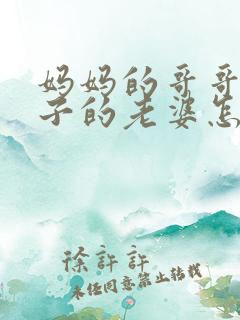 妈妈的哥哥
子的老婆怎
徐許許
未经同意禁止转载